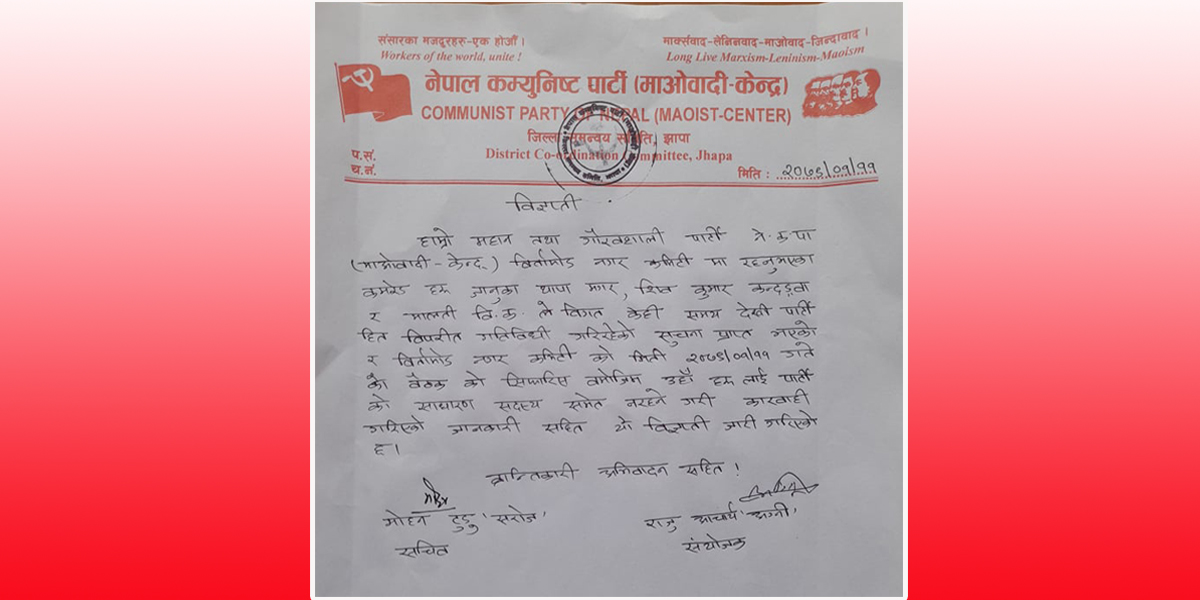 संसारका मजदुरहरु-एक होऔं ।
Workers of the world, unite !
मार्क्सवाद-लेनिनवाद-माओवाद-जिन्दावाद ।
Long Live Marxism-Leninism-Maoism
नेपाल कम्युनिष्ट पार्टी (माओवादी-केन्द्र)
COMMUNIST PARTY OF NEPAL (MAOIST-CENTER)
जिल्ला समन्वय समिति, झापा
District Co-ordination Committee, Jhapa
प.सं.
च.नं.
मिति :
विज्ञप्ती
हाम्रो महान तथा गौरवशाली पार्टी ने.क.पा
(माओवादी-केन्द्र) विर्तामोड नगर कमिटी मा रहनुभएका
कमरेड हरु जानुका थापा मगर, शिव कुमार कन्दङ्वा
र मालती वि.क. ले विगत केही समय देखी पार्टी
हित विपरीत गतिविधी गरिरहेको सुचना प्राप्त भएको
र विर्तामोड नगर कमिटी को मिती गते
को बैठक को सिफारिस बमोजिम उहाँ हरु लाई पार्टी
को साधारण सदस्य समेत नरहने गरी कारवाही
गरिएको जानकारी सहित यो विज्ञप्ती जारी गरिएको
छ।
क्रान्तिकारी अभिवादन सहित !
मोहन टुडु 'सरोज'
सचिव
राजु आचार्य 'अग्नी'
संयोजक